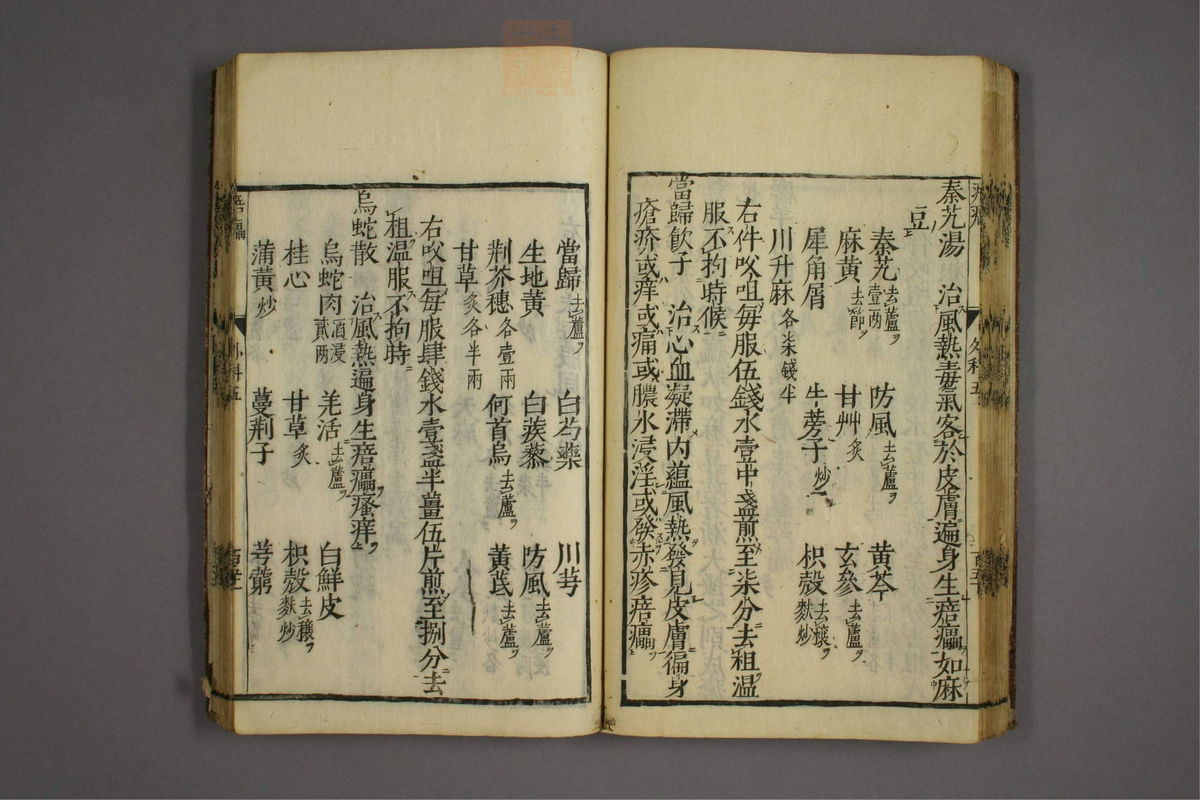 秦艽湯 治風熱毒氣客於皮膚遍身生㾦㿔如麻
豆
秦艽去蘆壹兩 防風去蘆 黄芩
麻黄去節 甘艸炙 玄參去蘆
犀角屑 牛蒡子炒 枳殼去穰麩炒
川升麻各柒錢半
右件㕮咀每服伍錢水壹中盞煎至柒分去柤温
服不拘時候
當歸飲子 治心血凝滯内蘊風熱發見皮膚徧身
瘡疥或痒或痛或膿水浸淫或發赤疹㾦㿔
當歸去蘆 白芍藥 川芎
生地黄 白蒺蔾 防風去蘆
荆芥穗各壹兩 何首烏去蘆 黄芪去蘆
甘草炙各半兩
右㕮咀每服肆錢水壹盞半薑伍片煎至捌分去
柤温服不拘時
烏蛇散 治風熱遍身生㾦㿔瘙痒
烏蛇肉酒浸貳两 羌活去蘆 白鮮皮
桂心 甘草炙 枳殼去穰麩炒
蒲黄炒 蔓荆子 芎藭
外科五